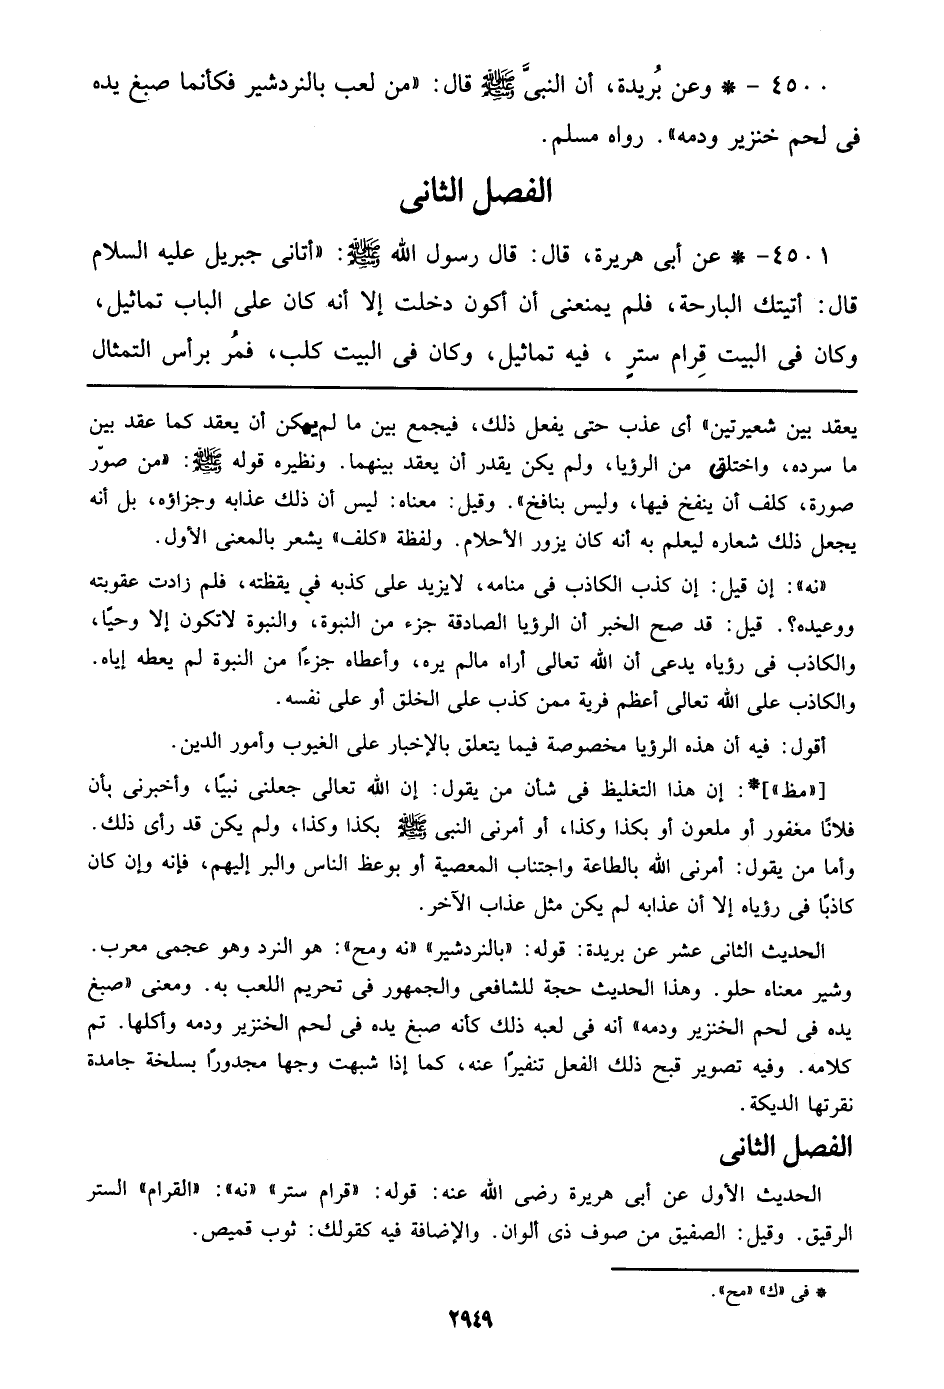 ٤٥٠٠ - * وعن بُريدة، أن النبىَّ ﷺ قال: «من لعب بالنردشير فكأنما صبغ يده
فى لحم خنزير ودمه». رواه مسلم.
الفصل الثانى
٤٥٠١- * عن أبى هريرة، قال: قال رسول الله ﷺ: «أتانى جبريل عليه السلام
قال: أتيتك البارحة، فلم يمنعنى أن أكون دخلت إلا أنه كان على الباب تماثيل،
وكان فى البيت قِرام سترٍ ، فيه تماثيل، وكان فى البيت كلب، فمُر برأس التمثال
يعقد بين شعيرتين» أى عذب حتى يفعل ذلك، فيجمع بين ما لم يمكن أن يعقد كما عقد بين
ما سرده، واختلق من الرؤيا، ولم يكن يقدر أن يعقد بينهما. ونظيره قوله ﷺ: «من صوّر
صورة، كلف أن ينفخ فيها، وليس بنافخ». وقيل: معناه: ليس أن ذلك عذابه وجزاؤه، بل أنه
يجعل ذلك شعاره ليعلم به أنه كان يزور الأحلام. ولفظة «كلف» يشعر بالمعنى الأول.
«نه»: إن قيل: إن كذب الكاذب فى منامه، لايزيد على كذبه في يقظته، فلم زادت عقوبته
ووعيده؟. قيل: قد صح الخبر أن الرؤيا الصادقة جزء من النبوة، والنبوة لاتكون إلا وحيًا،
والكاذب فى رؤياه يدعى أن الله تعالى أراه مالم يره، وأعطاه جزءًا من النبوة لم يعطه إياه.
والكاذب على الله تعالى أعظم فرية ممن كذب على الخلق أو على نفسه.
أقول: فيه أن هذه الرؤيا مخصوصة فيما يتعلق بالإخبار على الغيوب وأمور الدين.
[«مظ»]*: إن هذا التغليظ فى شأن من يقول: إن الله تعالى جعلنى نبيًا، وأخبرنى بأن
فلانًا مغفور أو ملعون أو بكذا وكذا، أو أمرنى النبى ﷺ بكذا وكذا، ولم يكن قد رأى ذلك.
وأما من يقول: أمرنى الله بالطاعة واجتناب المعصية أو بوعظ الناس والبر إليهم، فإنه وإن كان
كاذبًا فى رؤياه إلا أن عذابه لم يكن مثل عذاب الآخر.
الحديث الثانى عشر عن بريدة: قوله: «بالنردشير» «نه ومح»: هو النرد وهو عجمى معرب.
وشير معناه حلو. وهذا الحديث حجة للشافعى والجمهور فى تحريم اللعب به. ومعنى «صبغ
يده فى لحم الخنزير ودمه» أنه فى لعبه ذلك كأنه صبغ يده فى لحم الخنزير ودمه وأكلها. تم
كلامه. وفيه تصوير قبح ذلك الفعل تنفيرًا عنه، كما إذا شبهت وجها مجدورًا بسلخة جامدة
نقرتها الديكة.
الفصل الثانى
الحديث الأول عن أبى هريرة رضى الله عنه: قوله: «قرام ستر» «نه»: «القرام» الستر
الرقيق. وقيل: الصفيق من صوف ذى ألوان. والإضافة فيه كقولك: ثوب قميص.
* فى «ك» «مح».
٢٩٤٩